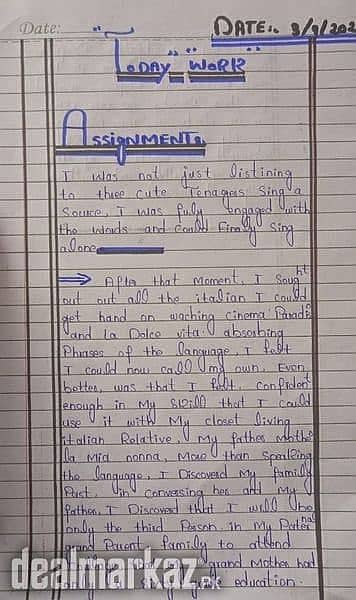 Date:
DATE:. 3/9/202
Today Work
Assignment:
I was not just listining
to three cute Tenagers Sing a
Source, I was fully engaged with
the words and could finally Sing
alone
After that moment, I sought
out out all the italian I could
get hand on waching cinema Paradi
and la Dolce vita: absorbing
Phrases of the language, I felt
I could now call my own. Even
better, was that I felt confident
enough in My Skill that I could
use it with My closet living
italian Relative, My father Mothe
la mia nonna, More than Speaking
the language, I Discoverd My family
Past, in conversing her and My
father, I Discoverd that I will be
only the third Person in My Pater nal
grand Parent family to attend
grand Mother had
grade education.
dealmarkaz.pk